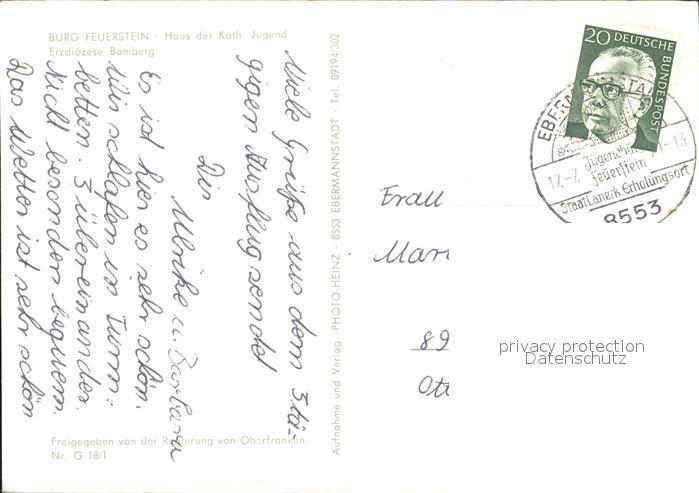 BURG FEUERSTEIN - Haus der Kath. Jugend
Erzdiözese Bamberg
Viele Grüße aus dem 3tä-
gigen Ausflug sendet
Dir
Ulrike u. Barbara
Es ist hier es sehr schön.
Wir schlafen in Turm-
betten. 3 übereinander.
Nicht besonders bequem.
Das Wetter ist sehr schön
Freigegeben von der Regierung von Oberfranken
Nr. G 18/1
Aufnahme und Verlag: PHOTO-HEINZ - 8553 EBERMANNSTADT - Tel. 09194/302
20 DEUTSCHE
BUNDESPOST
Feuerstein
Staatl.anerk.Erholungsort
8553
Frau
Mar
89
Ott
privacy protection
Datenschutz